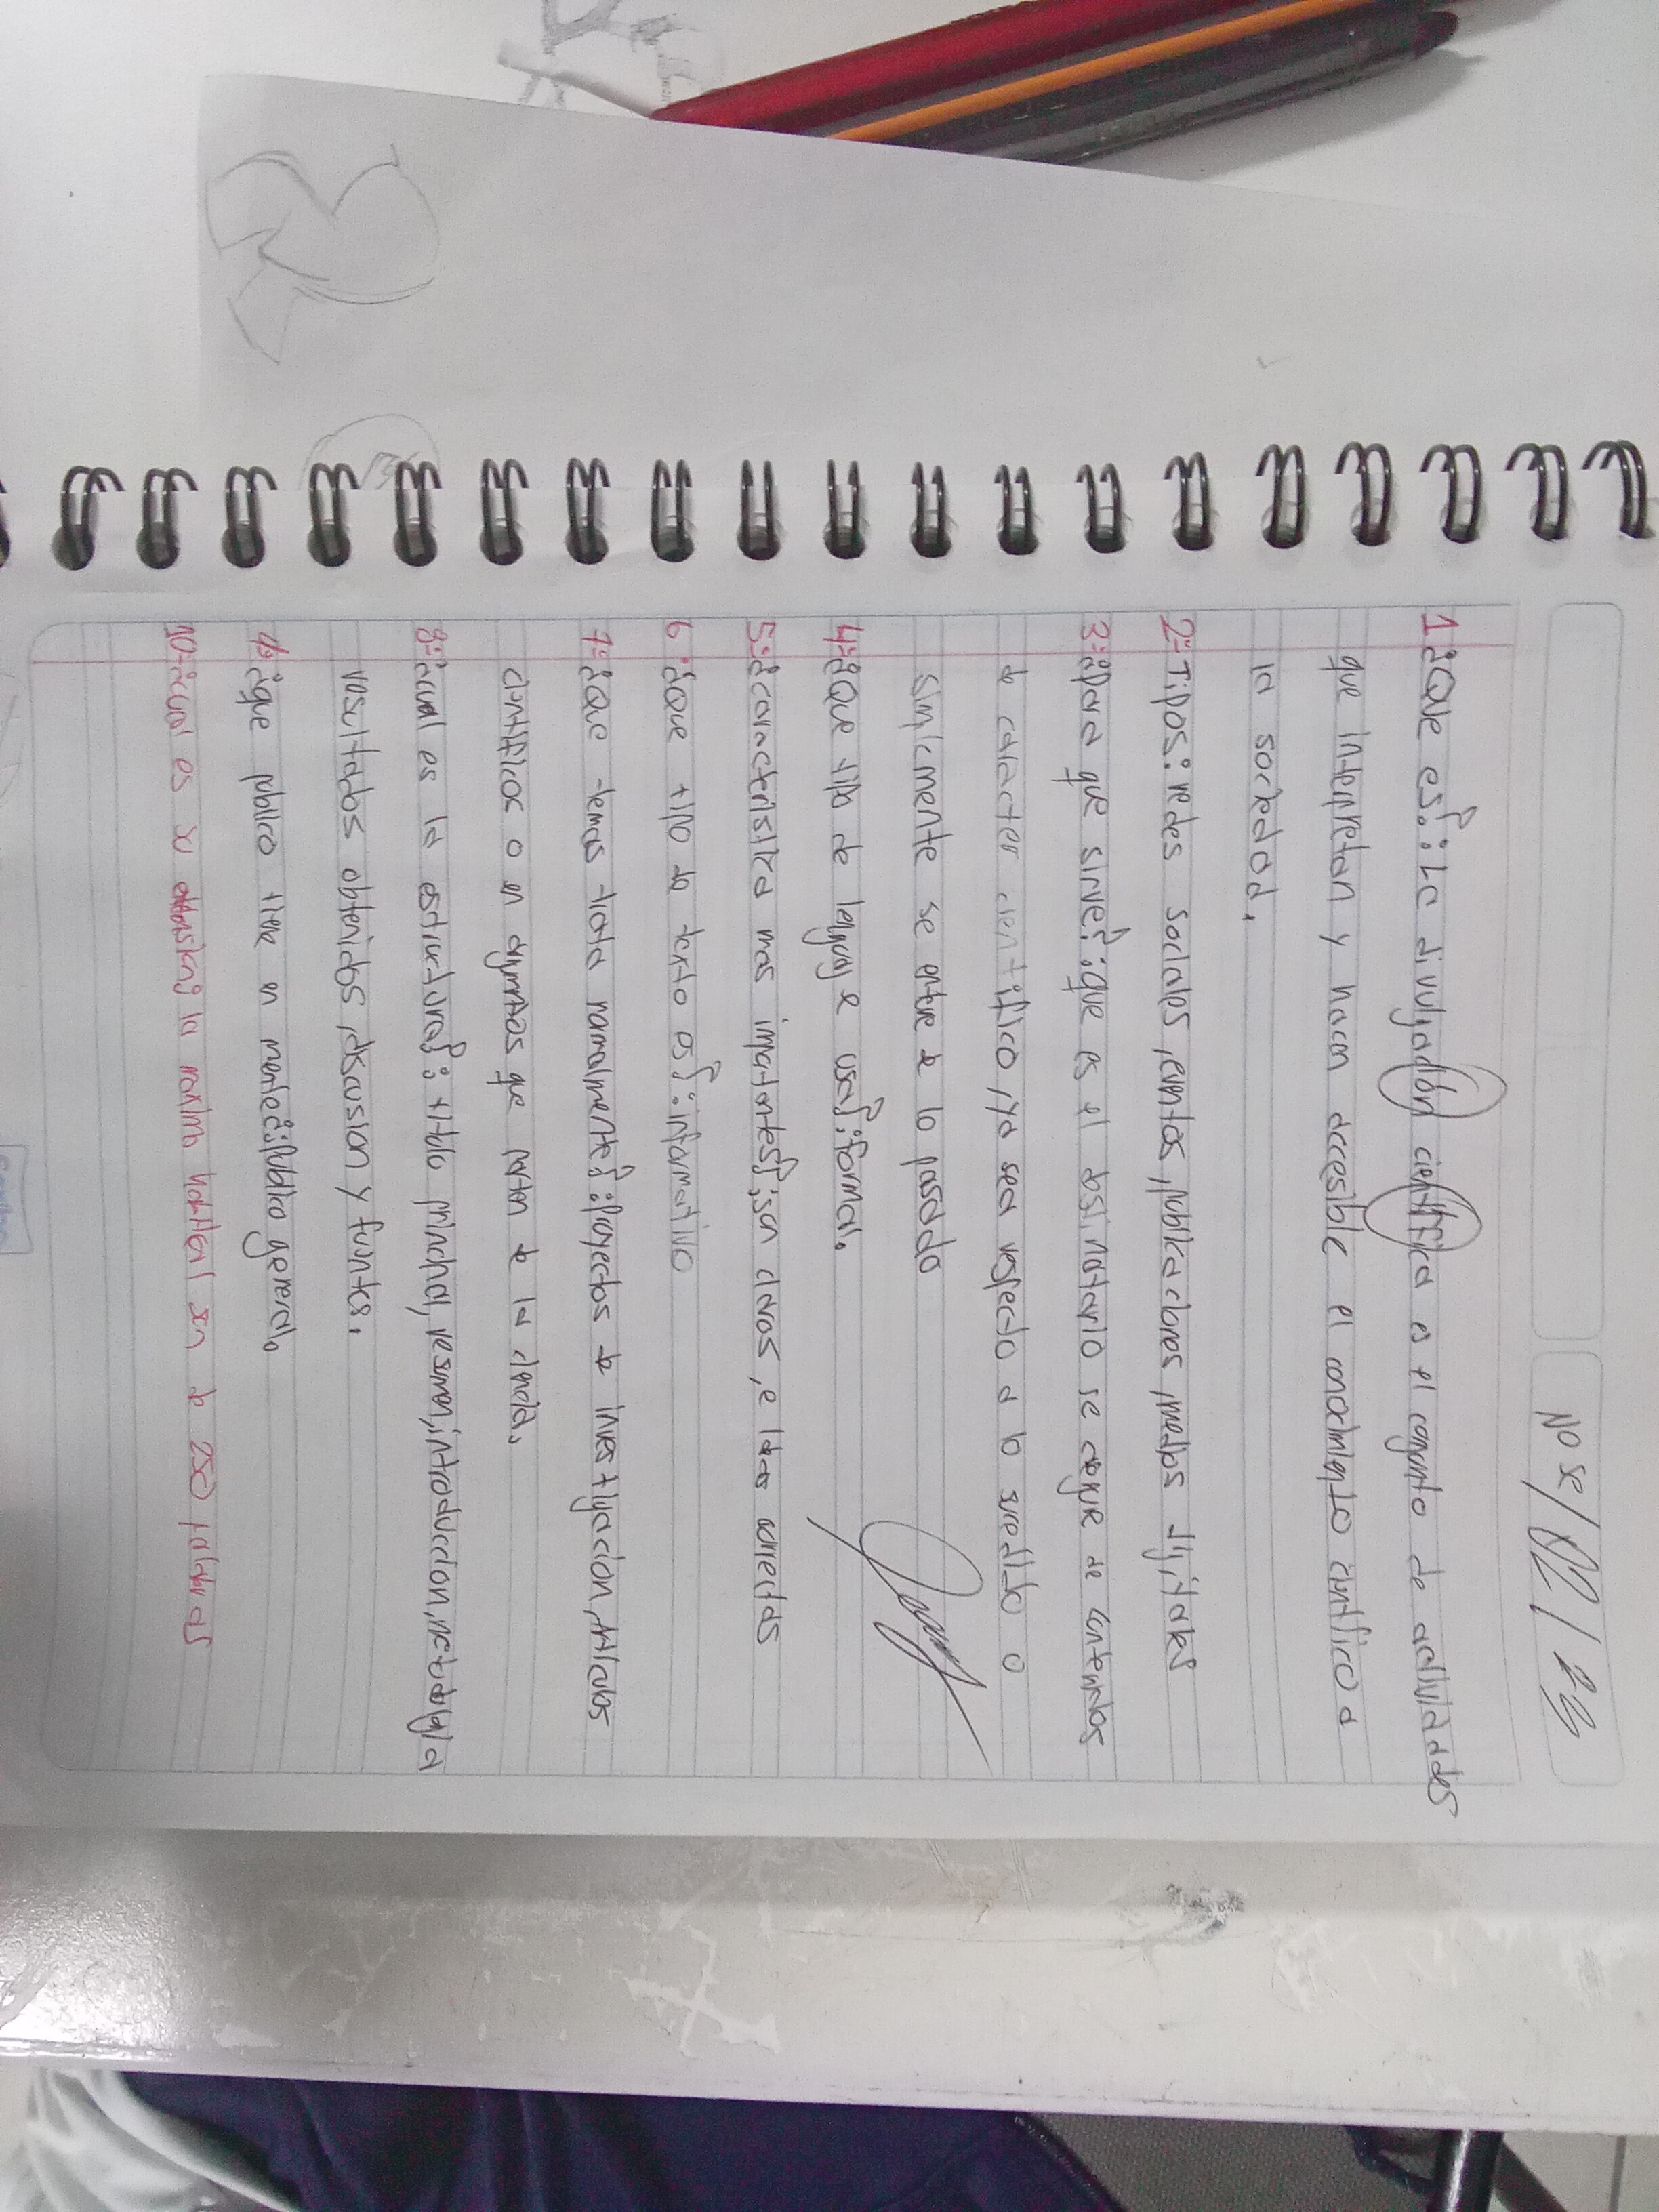 No se / 02 / 23
1-¿Que es?: La divulgación científica es el conjunto de actividades
que interpretan y hacen accesible el conocimiento científico a
la sociedad.
2-Tipos: redes sociales, eventos, publicaciones, medios digitales
3-¿para que sirve?: que es el destinatario se cargue de contenidos
de caracter científico, ya sea respecto a lo sucedido o
simplemente se entere de lo pasado
4-¿Que tipo de lenguaje usa?: formal.
5-¿caracteristica mas importantes?: son claros, e ideas correctas
6-¿Que tipo de texto es?: informativo
7-¿Que temas trata normalmente?: proyectos de investigacion, articulos
cientificos o en argumentos que parten de la ciencia.
8-¿cual es la estructura?: titulo principal, resumen, introduccion, metodologia
resultados obtenidos, discusion y fuentes.
9-¿que publico tiene en mente?: publico general.
10-¿cual es su extension? la minimo habitual son de 250 palabras